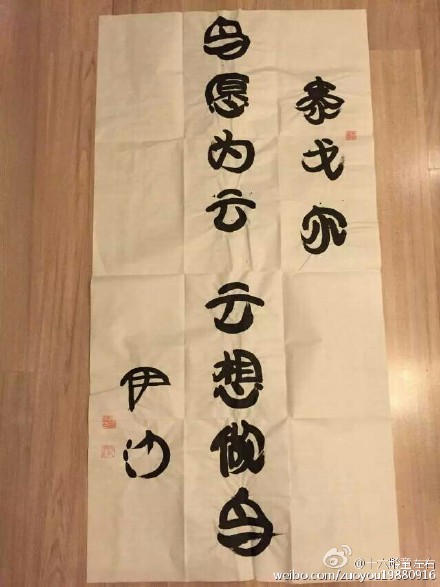 泰戈尔
鸟愿为云 云想做鸟
伊沙
@十六龄童左右
weibo.com/zuoyou19880916